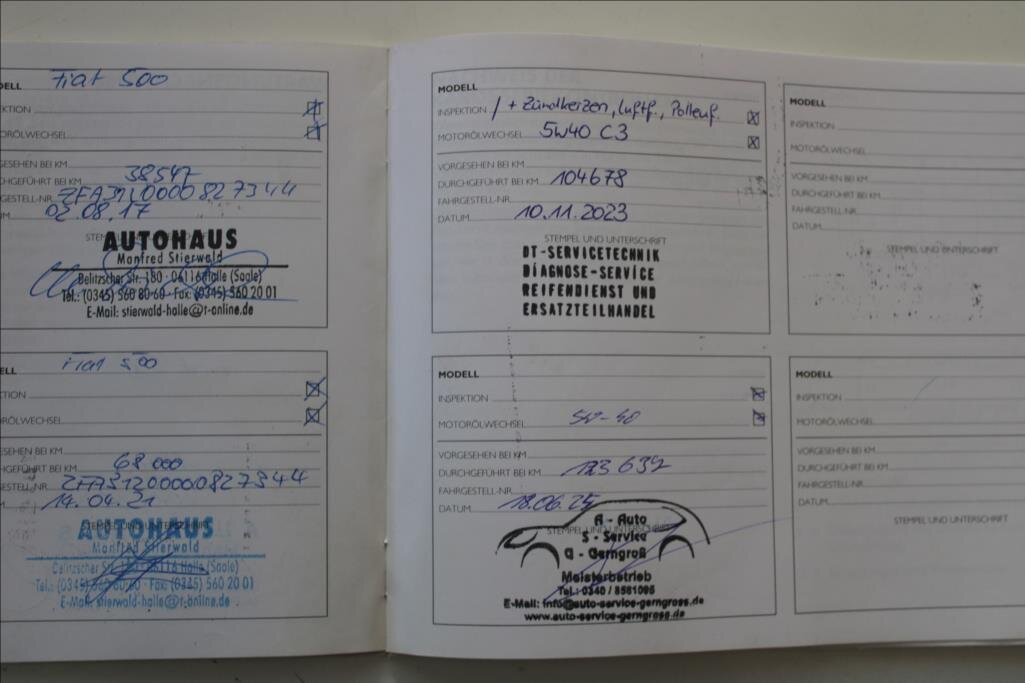 DELL Fiat 500
KTION
TORÖLWECHSEL
GESEHEN BEI KM
CHGEFÜHRT BEI KM 38547
GESTELL-NR. ZFA3120000827344
UM 02.08.17
AUTOHAUS
Manfred Stierwald
Delitzscher Str. 180 · 06116 Halle (Saale)
Tel.: (0345) 560 80-60 · Fax: (0345) 560 20 01
E-Mail: stierwald-halle@t-online.de
ELL Fiat 500
TION
RÖLWECHSEL
ESEHEN BEI KM
HGEFÜHRT BEI KM 68000
ESTELL-NR. ZFA3120000827344
M 14.04.21
STEMPEL UND UNTERSCHRIFT
AUTOHAUS
Manfred Stierwald
Delitzscher Str. 180 · 06116 Halle (Saale)
Tel.: (0345) 560 80-60 · Fax: (0345) 560 20 01
E-Mail: stierwald-halle@t-online.de
MODELL
INSPEKTION / + Zündkerzen, Luftf., Pollenf.
MOTORÖLWECHSEL 5W40 C3
VORGESEHEN BEI KM
DURCHGEFÜHRT BEI KM 104678
FAHRGESTELL-NR.
DATUM 10.11.2023
STEMPEL UND UNTERSCHRIFT
DT-SERVICETECHNIK
DIAGNOSE-SERVICE
REIFENDIENST UND
ERSATZTEILHANDEL
MODELL
INSPEKTION
MOTORÖLWECHSEL 5W-40
VORGESEHEN BEI KM
DURCHGEFÜHRT BEI KM
FAHRGESTELL-NR.
DATUM 18.06.25
STEMPEL UND UNTERSCHRIFT
A - Auto
S - Service
G - Gerngroß
Meisterbetrieb
Tel.: 0340 / 8581095
E-Mail: info@auto-service-gerngross.de
www.auto-service-gerngross.de
MODELL
INSPEKTION
MOTORÖLWECHSEL
VORGESEHEN BEI KM
DURCHGEFÜHRT BEI KM
FAHRGESTELL-NR.
DATUM
STEMPEL UND UNTERSCHRIFT
MODELL
INSPEKTION
MOTORÖLWECHSEL
VORGESEHEN BEI KM
DURCHGEFÜHRT BEI KM
FAHRGESTELL-NR.
DATUM
STEMPEL UND UNTERSCHRIFT